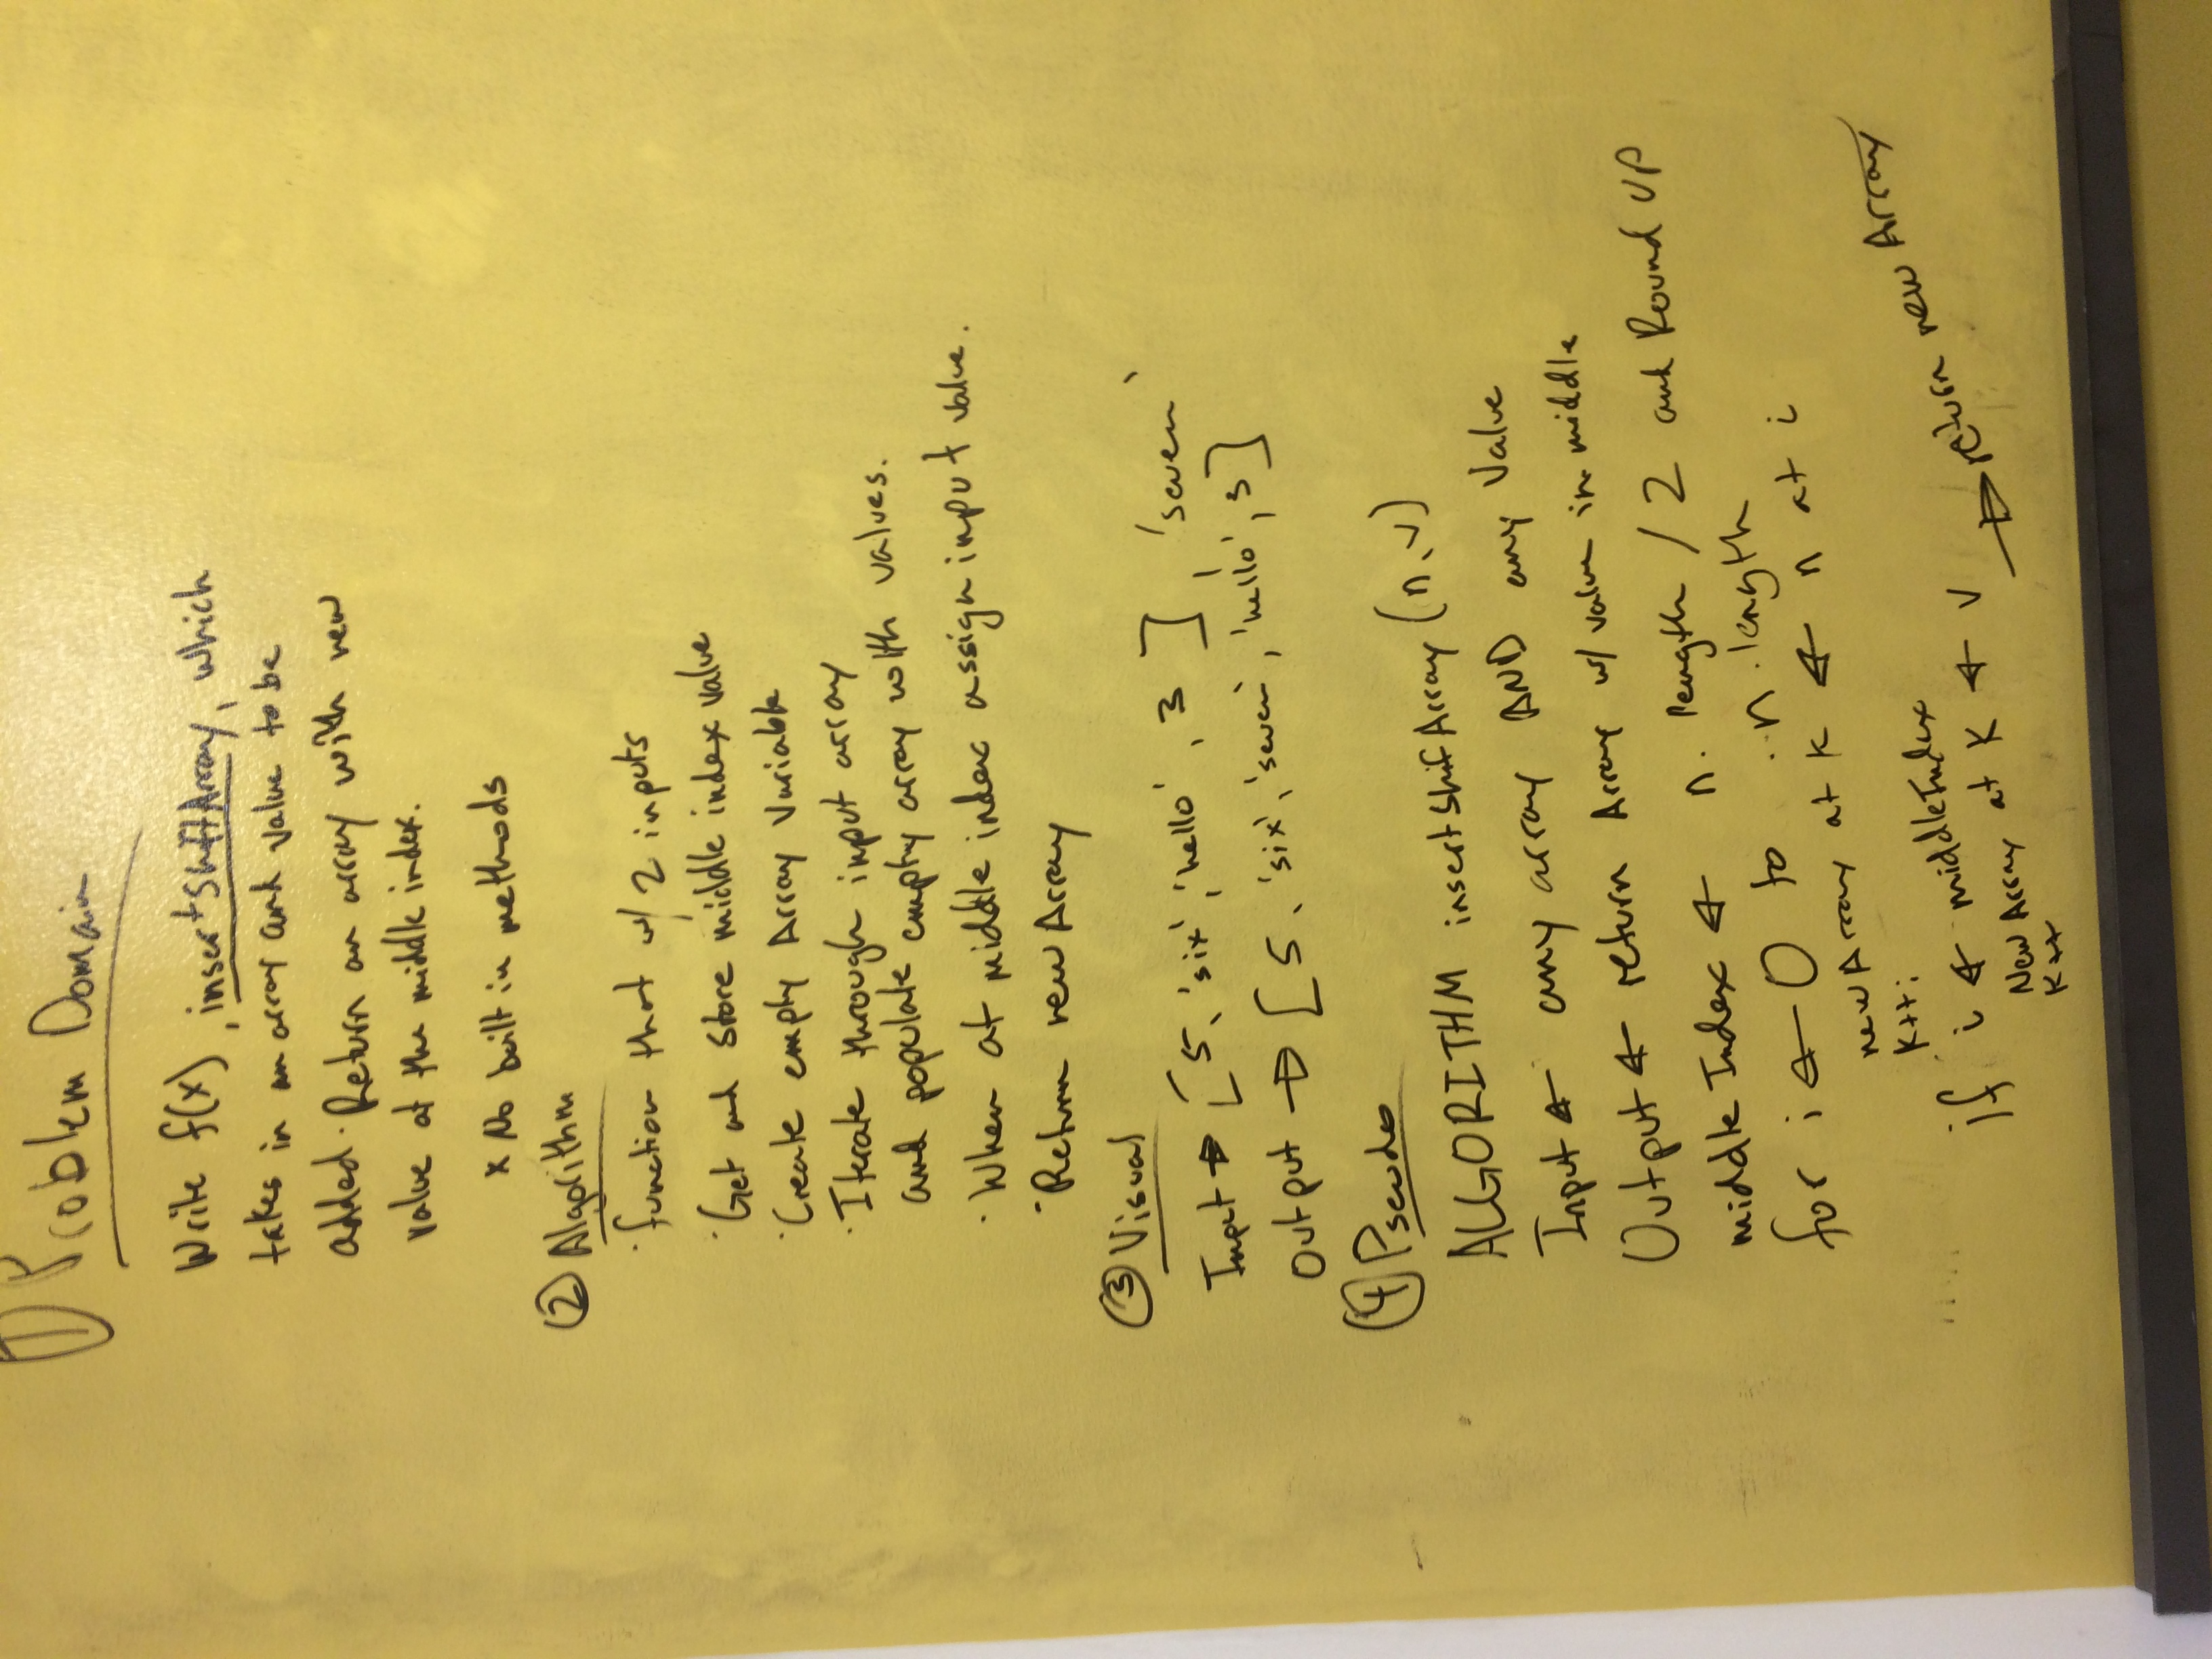 ① Problem Domain
Write f(x), insertShiftArray, which
takes in an array and value to be
added. Return an array with new
value at the middle index.
* No built in methods
② Algorithm
· function that w/ 2 inputs
· Get and store middle index value
· Create empty Array Variable
· Iterate through input array
and populate empty array with values.
· When at middle index assign input value.
· Return new Array
③ Visual
Input → [5, 'six', 'hello', 3], 'seven'
Output → [5, 'six', 'seven', 'hello', 3]
④ Pseudo
ALGORITHM insertShifArray (n, v)
Input ← any array AND any Value
Output ← return Array w/ value in middle
middle Index ← n.length / 2 and Round UP
for i ← 0 to n.length
new Array at k ← n at i
k++;
if i ← middleIndex
New Array at K ← v
K++
→ return new Array